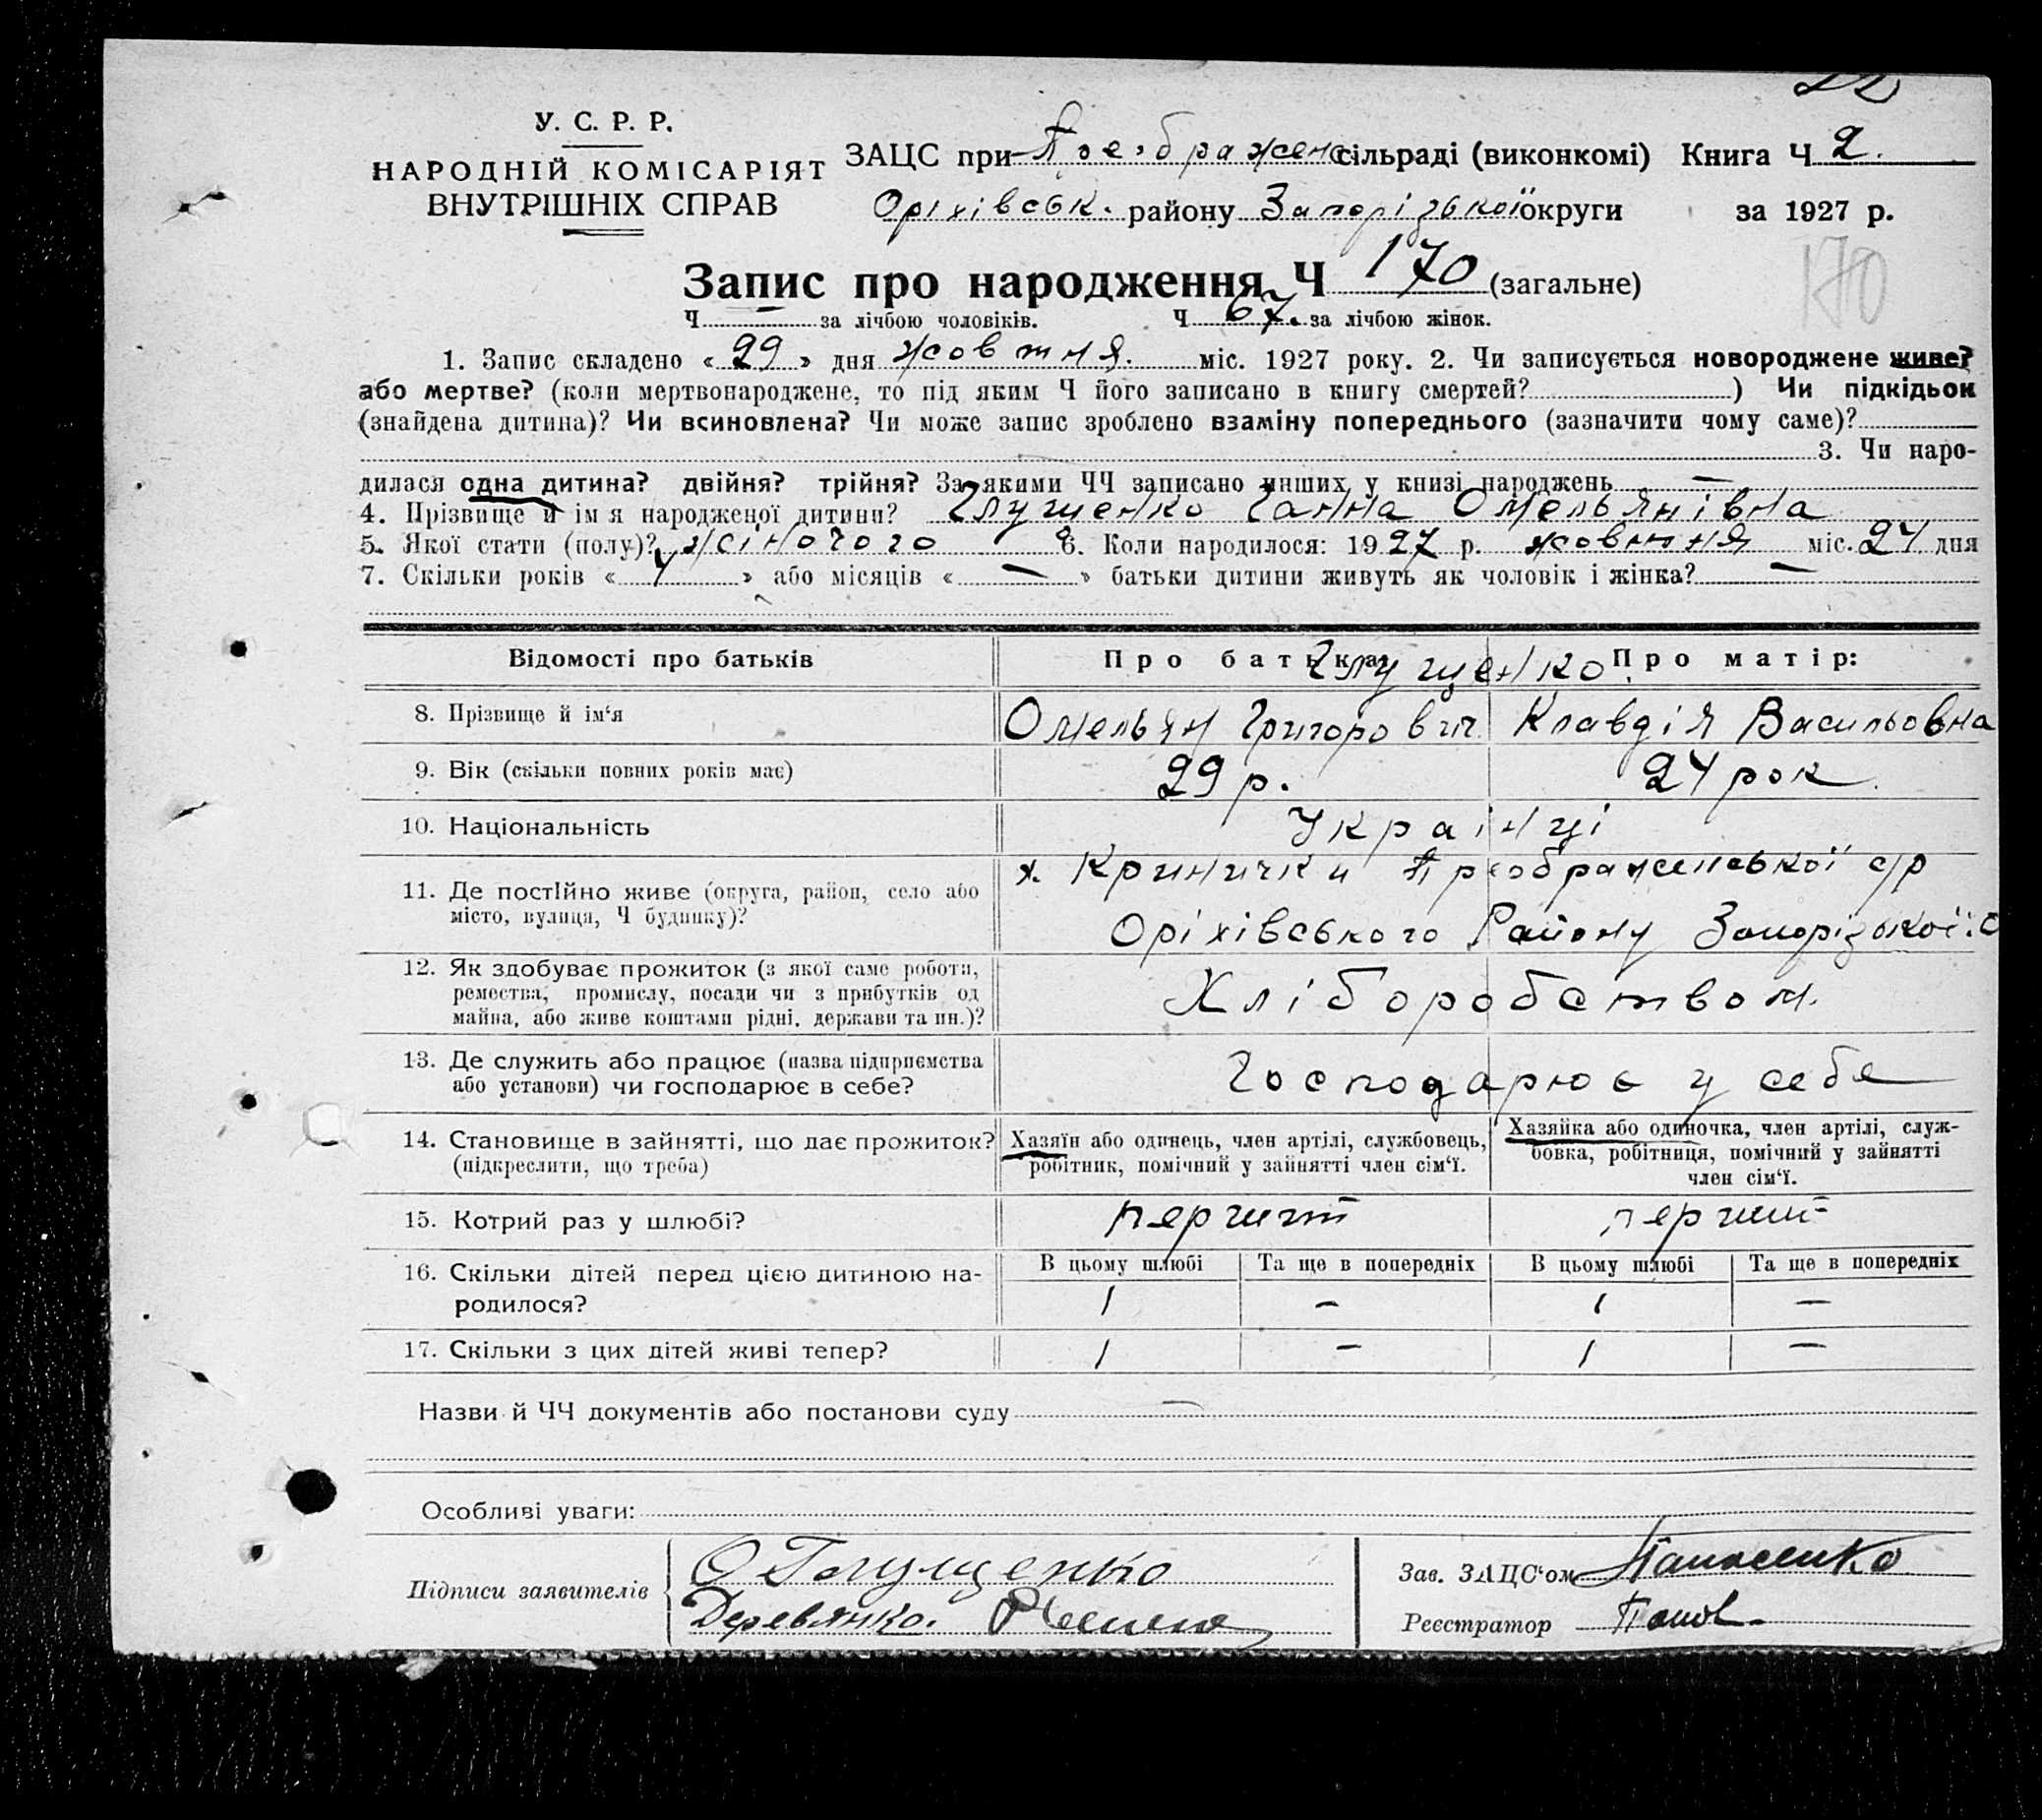 22
У. С. Р. Р.
НАРОДНІЙ КОМІСАРІЯТ
ВНУТРІШНІХ СПРАВ
ЗАЦС при Преображенс. сільраді (виконкомі) Книга Ч 2.
Оріхівськ. району Запорізької округи за 1927 р.
Запис про народження Ч 170 (загальне)
170
Ч — за лічбою чоловіків. Ч 67. за лічбою жінок.
1. Запис складено « 29 » дня жовтня. міс. 1927 року. 2. Чи записується новороджене живе?
або мертве? (коли мертвонароджене, то під яким Ч його записано в книгу смертей? ) Чи підкідьок
(знайдена дитина)? Чи всиновлена? Чи може запис зроблено взаміну попереднього (зазначити чому саме)?
3. Чи наро-
дилася одна дитина? двійня? трійня? За якими ЧЧ записано инших у книзі народжень —
4. Прізвище й ім я народженої дитини? Глущенко Ганна Омельянівна
5. Якої стати (полу)? жіночого 6. Коли народилося: 1927 р. жовтня міс. 24 дня
7. Скільки років « 4 » або місяців « — » батьки дитини живуть як чоловік і жінка? —
Відомості про батьків
Про батька: Про матір:
Глущенко.
8. Прізвище й ім‘я
Омельян Григорович Клавдія Васильовна
9. Вік (скільки повних років має)
29 р. 24 рок.
10. Національність
Українці
11. Де постІйно живе (округа, район, село або
місто, вулиця, Ч будинку)?
х. Кринички Преображенської с/р
Оріхівського Району Запорізької о
12. Як здобуває прожиток (з якої саме роботи,
ремества, промислу, посади чи з прибутків од
майна, або живе коштами рідні, держави та ин.)?
Хліборобством.
13. Де служить або працює (назва підприємства
або установи) чи господарює в себе?
Господарює у себе
14. Становище в зайнятті, що дає прожиток?
(підкреслити, що треба)
Хазяїн або одинець, член артілі, службовець,
робітник, помічний у зайнятті член сім‘ї.
Хазяйка або одиночка, член артілі, служ-
бовка, робітниця, помічний у зайнятті
член сім‘ї.
15. Котрий раз у шлюбі?
перший перший
16. Скільки дітей перед цією дитиною на-
родилося?
В цьому шлюбі Та ще в попередніх В цьому шлюбі Та ще в попередніх
1 — 1 —
17. Скільки з цих дітей живі тепер?
1 — 1 —
Назви й ЧЧ документів або постанови суду —
Особливі уваги:
Підписи заявителів
О Глущенко
Деревянко.
Зав. ЗАЦС‘ом Панасенко
Реєстратор